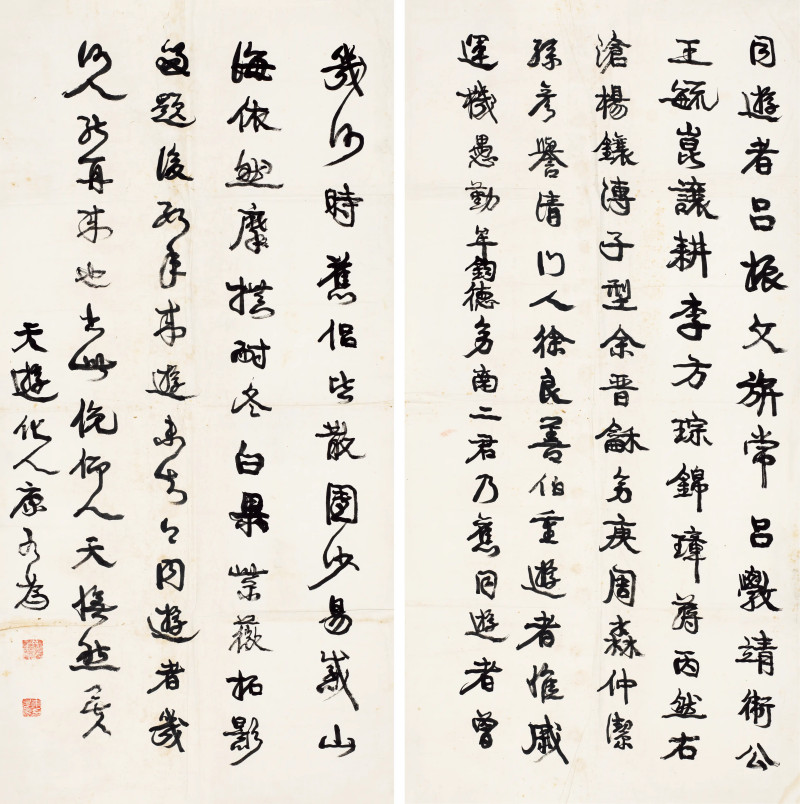 同遊者呂振文旂常呂斆靖術公
王毓崑讓耕李方琮錦璋蔣丙然右
滄楊鑲溥子型余晉龢多庚周森仲潔
孫彥譽清門人徐良善伯重遊者惟戚
運機愚勤牟鈞德多南二君乃舊同遊者曾
幾何時舊侶皆散園少易歲山
海依然摩撫耐冬白果紫薇拓影
留題後數年來遊未知今同遊者幾
何人能再來也書此俛仰人天撫然
天遊化人康有為